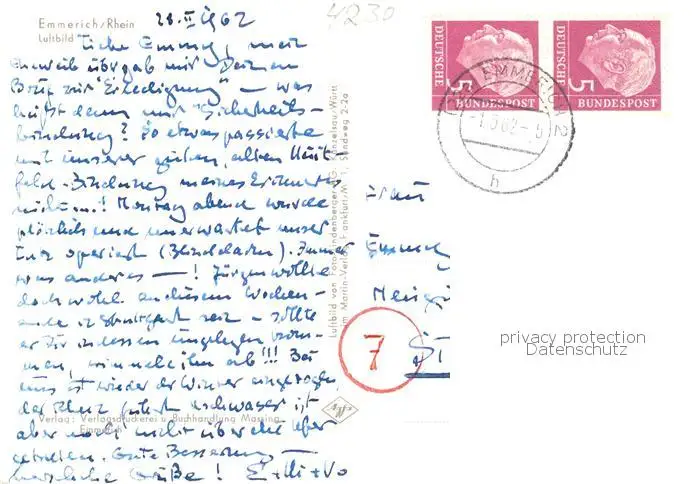 Emmerich/Rhein
Luftbild
28. II 1962
4230
Liebe Emmy, mein
Eheweib übergab mir Deinen
Brief zur "Erledigung" – was
heißt denn nur "Sicherheits-
bindung? So etwas passierte
mit unserer guten, alten
feld-Bindung meines Erinnerns
nicht...! Montag abend wurde
plötzlich und unerwartet unser
operiert (Blinddarm). Immer
was anderes –! Jürgen wollte
doch wohl an diesem Wochen-
ende in Stuttgart sein – sollte
er Dir indessen ungelegen kom-
men, wimmele ihn ab!!! Bei
uns ist wieder der Winter eingezogen,
der Rhein führt Hochwasser, ist
aber noch nicht über die Ufer
getreten. Gute Besserung –
herzliche Grüße! E + Mi + Vo
Verlag: Verlagsdruckerei u. Buchhandlung Massing
Emmerich
Künzelsau/Württ
Am Martin-Verlag, Frankfurt/M. 1, Sandweg 2-2a
DEUTSCHE
BUNDESPOST
5
DEUTSCHE
BUNDESPOST
5
EMMERICH 2
-1.3.62
h
Frau
Emmy
7
privacy protection
Datenschutz